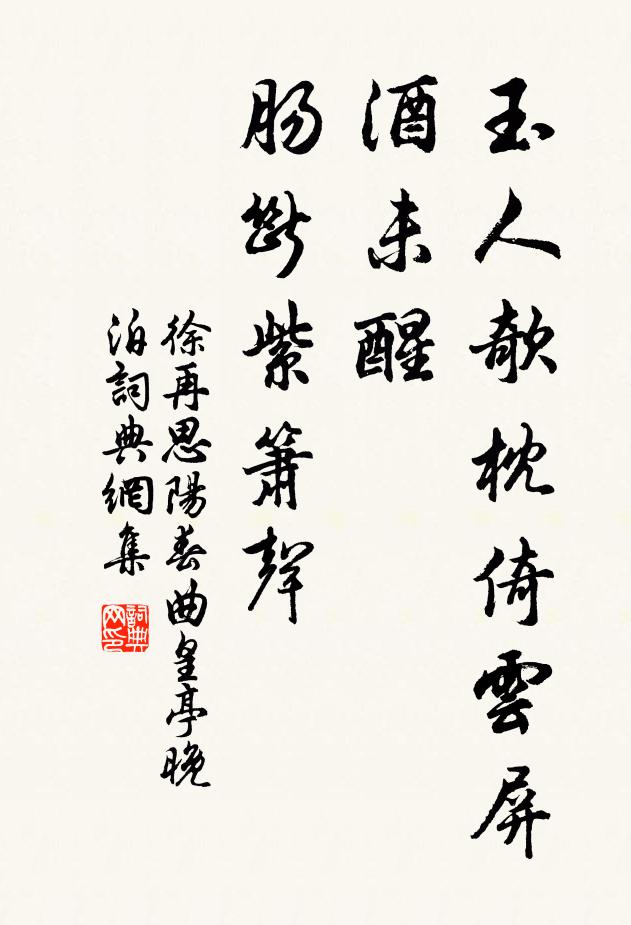 玉人欹枕倚雲屏
酒未醒
腸斷紫簫聲
徐再思陽春曲皇亭晚
泊詞典網集
詞典
网印